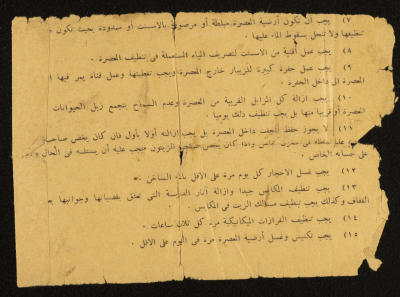 ٧) يجب ان تكون أرضية المعصرة مبلطة او مرصوفة بالاسمنت او مدودة بحيث تكون
تنظيفها ولا تنحل بسقوط الماء عليها .
٨) يجب عمل أقنية من الاسمنت لتصريف المياه المستعملة في تنظيف المعصرة .
٩) يجب عمل حفرة كبيرة للزيبار خارج المعصرة ويجب تغطيتها وعمل قناة يمر فيها
المعصرة الى داخل الحفرة .
١٠) يجب ازالة كل المزابل القريبة من المعصرة وعدم السماح بتجمع زبل الحيوانات
المعصرة أو قريبا منها بل يجب تنظيف ذلك يوميا .
١١) لا يجوز حفظ الجفت داخل المعصرة بل يجب ازالته أولا بأول فان كان يخص صاحب
حفظه في مخزن خاص واذا كان يخص صاحب الزيتون فيجب عليه أن يستلمه في الحال
على حسابه الخاص .
١٢) يجب غسل الاحجار كل يوم مرة على الاقل بالماء الساخن .
١٣) يجب تنظيف المكابس جيدا وازالة آثار التي تعلق بقضبانها وجوانبها
القفاف وكذلك يجب تنظيف مسالك الزيت في المكابس .
١٤) يجب تنظيف الفرازات الميكانيكية مرة كل ثلاث ساعات .
١٥) يجب تكنيس وغسل أرضية المعصرة مرة في اليوم على الاقل .